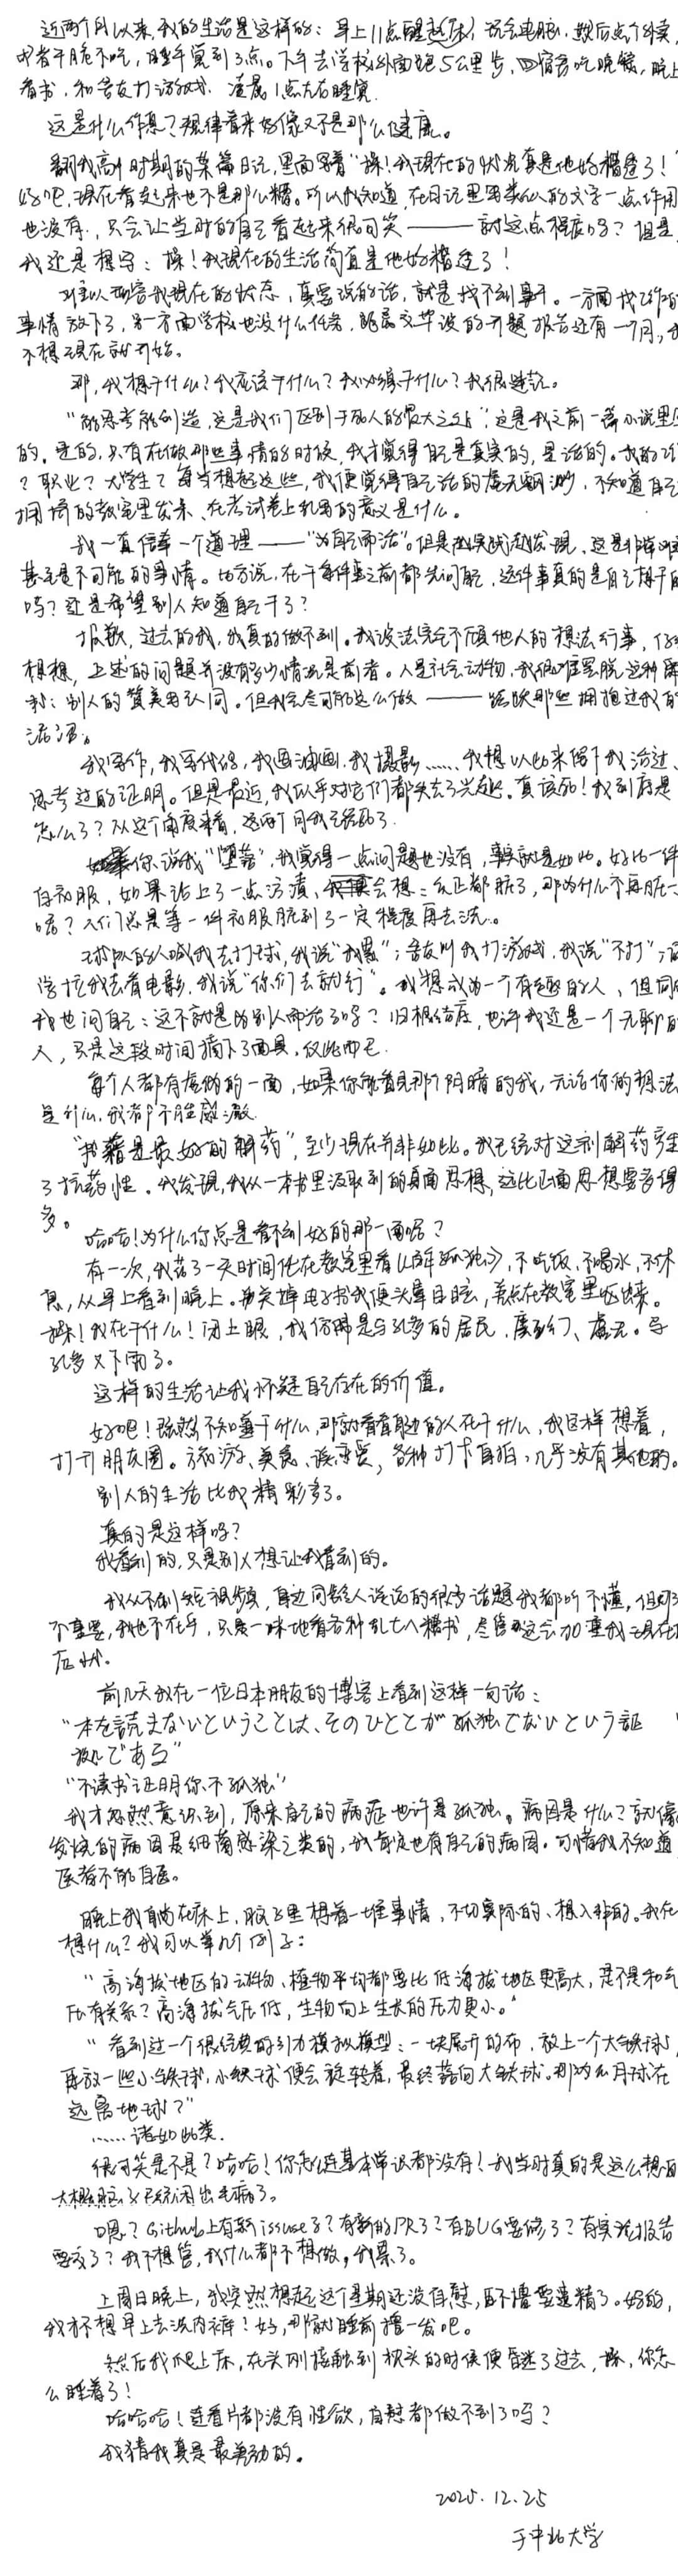 近两个月以来,我的生活是这样的:早上11点醒起(床),玩会电脑,然后点个外卖,
或者干脆不吃,睡午觉到3点。下午去学校外面跑5公里步,回宿舍吃晚餐,晚上
看书,和舍友打游戏,凌晨1点左右睡觉.
这是什么作息?规律看来好像又不是那么健康。
翻我高中时期的某篇日记,里面写着“操!我现在的状况真是他妈糟透了!”
好吧,现在看起来也不是那么糟。所以我知道,在日记里写类似的文字一点作用
也没有,只会让当时的自己看起来很可笑——讨这点程度吗?但是,
我还是想写:操!我现在的生活简直是他妈糟透了!
难以形容我现在的状态,真要说的话,就是找不到事干。一方面找工作的
事情放下了,另一方面学校也没什么任务,距离交毕设的开题报告还有一个月,我
不想现在就开始。
那,我想干什么?我应该干什么?我必须干什么?我很迷茫。
“能思考能创造,这是我们区别于死人的最大之处”,这是我之前一篇小说里写
的。是的,只有在做那些事情的时候,我才觉得自己是真实的,是活的。我的
?职业?大学生?每当想起这些,我便觉得自己活的虚无飘渺,不知道自己
拥挤的教室里发呆、在考试卷上乱写的意义是什么。
我一直信奉一个道理——“为自己而活”。但是越实践越发现,这是非常难
甚至是不可能的事情。比方说,在干每件事之前都先问自己,这件事真的是自己想干的
吗?还是希望别人知道自己干了?
抱歉,过去的我,我真的做不到。我没法完全不顾他人的想法行事,仔细
想想,上述的问题并没有多少情况是前者。人是社会动物,我很难摆脱这种
:别人的赞美与认同。但我会尽可能这么做——践踏那些拥抱过我的
活泪。
我写作,我写代码,我画油画,我摄影……我想以此来留下我活过、
思考过的证明。但是最近,我似乎对它们都失去了兴趣。真该死!我到底是
怎么了?从这个角度来看,这两个月我已经死了.
如果你说我“堕落”,我觉得一点问题也没有,事实就是如此。好比一件
白衣服,如果沾上了一点污渍,会想:反正都脏了,那为什么不再脏一
呢?人们总是等一件衣服脏到了一定程度再去洗。
球队的人喊我去打球,我说“我累”;舍友叫我打游戏,我说“不打”;同
学拉我去看电影,我说“你们去就行”。我想成为一个有趣的人,但同时
我也问自己:这不就是为别人而活了吗?归根结底,也许我还是一个无聊的
人,只是这段时间摘下了面具,仅此而已.
每个人都有虚伪的一面,如果你能看见那个阴暗的我,无论你的想法
是什么,我都不胜感激.
“书籍是最好的解药”,至少现在并非如此。我已经对这剂解药产生
了抗药性。我发现,我从一本书里汲取到的负面思想,远比正面思想要多得
多。
哈哈!为什么你总是看不到好的那一面呢?
有一次,我花了一天时间在教室里看《百年孤独》,不吃饭,不喝水,不休
息,从早上看到晚上。再关掉电子书我便头晕目眩,差点在教室里吐出来。
操!我在干什么!闭上眼,我仿佛是马孔多的居民,魔幻、虚无。马
孔多又下雨了。
这样的生活让我怀疑自己存在的价值。
好吧!既然不知道干什么,那就看看身边的人在干什么,我这样想着,
打开朋友圈。旅游、美食、谈恋爱,各种打卡自拍,几乎没有其他的。
别人的生活比我精彩多了。
真的是这样吗?
我看到的,只是别人想让我看到的。
我从不刷短视频,身边同龄人谈论的很多话题我都听不懂,但那
不重要,我也不在乎,只是一味地看各种乱七八糟书,尽管这会加重我现在的
症状.
前几天我在一位日本朋友的博客上看到这样一句话:
“本を読まないということは、そのひとが孤独でないという証
拠である”
“不读书证明你不孤独”
我才忽然意识到,原来自己的病症也许是孤独。病因是什么?就像
发烧的病因是细菌感染之类的,我肯定也有自己的病因。可惜我不知道
医者不能自医。
晚上我躺在床上,脑子里想着一堆事情,不切实际的、想入非非的。我在
想什么?我可以举几个例子:
“高海拔地区的动物、植物平均都要比低海拔地区更高大,是不是和气
压有关系?高海拔气压低,生物向上生长的压力更小。”
“看到过一个很经典的引力模拟模型:一块展开的布,放上一个大铁球,
再放一些小铁球,小铁球便会旋转着,最终落向大铁球。那为什么月球在
远离地球?”
……诸如此类.
很可笑是不是?哈哈!你怎么连基本常识都没有!我当时真的是这么想的
大概脑子已经闲出毛病了。
嗯?Github上有新issuse了?有新的PR了?有BUG要修了?有实验报告
要交了?我不想管,我什么都不想做,我累了。
上周日晚上,我突然想起这个星期还没自慰,再不撸要遗精了。好的,
我才不想早上去洗内裤!好,那就睡前撸一发吧。
然后我爬上床,在头刚接触到枕头的时候便昏迷了过去,操,你怎
么睡着了!
哈哈哈!连看片都没有性欲,自慰都做不到了吗?
我猜我真是最单纯的。
2025.12.25
于中北大学